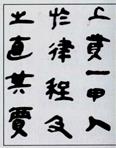 上貲一甲人
於律程及
之直其賈